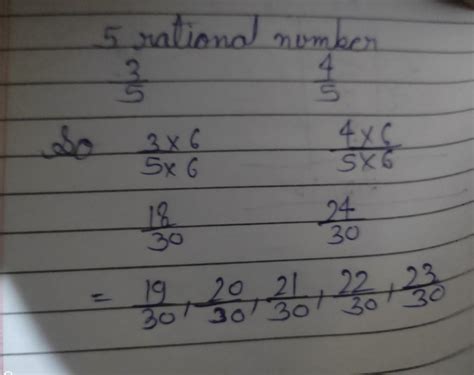 5 rational number
3/5 4/5
So 3×6/5×6 4×6/5×6
18/30 24/30
= 19/30, 20/30, 21/30, 22/30, 23/30